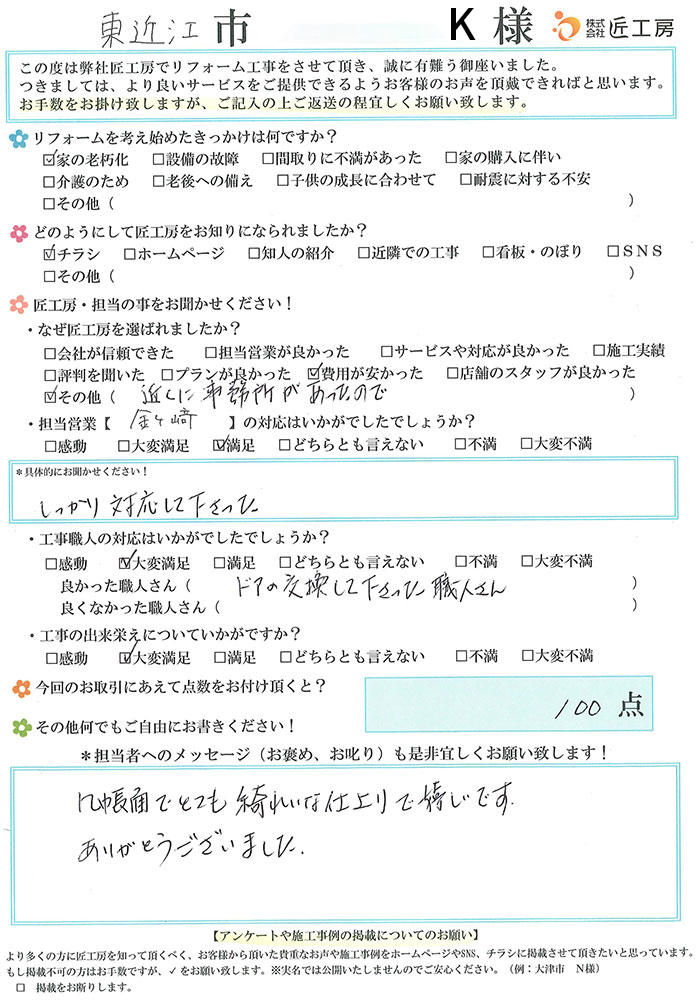 東近江 市 K 様 株式会社 匠工房
この度は弊社匠工房でリフォーム工事をさせて頂き、誠に有難う御座いました。
つきましては、より良いサービスをご提供できるようお客様のお声を頂戴できればと思います。
お手数をお掛け致しますが、ご記入の上ご返送の程宜しくお願い致します。
リフォームを考え始めたきっかけは何ですか？
☑家の老朽化 □設備の故障 □間取りに不満があった □家の購入に伴い
□介護のため □老後への備え □子供の成長に合わせて □耐震に対する不安
□その他（ ）
どのようにして匠工房をお知りになられましたか？
☑チラシ □ホームページ □知人の紹介 □近隣での工事 □看板・のぼり □SNS
□その他（ ）
匠工房・担当の事をお聞かせください！
・なぜ匠工房を選ばれましたか？
□会社が信頼できた □担当営業が良かった □サービスや対応が良かった □施工実績
□評判を聞いた □プランが良かった ☑費用が安かった □店舗のスタッフが良かった
☑その他（ 近くに事務所があったので
・担当営業【 金ヶ﨑 】の対応はいかがでしたでしょうか？
□感動 □大変満足 ☑満足 □どちらとも言えない □不満 □大変不満
＊具体的にお聞かせください！
しっかり対応して下さった
・工事職人の対応はいかがでしたでしょうか？
□感動 ☑大変満足 □満足 □どちらとも言えない □不満 □大変不満
良かった職人さん（ ドアの交換して下さった職人さん ）
良くなかった職人さん（ ）
・工事の出来栄えについていかがですか？
□感動 ☑大変満足 □満足 □どちらとも言えない □不満 □大変不満
今回のお取引にあえて点数をお付け頂くと？ 100 点
その他何でもご自由にお書きください！
＊担当者へのメッセージ（お褒め、お叱り）も是非宜しくお願い致します！
几帳面でとても綺れいな仕上りで嬉しいです.
ありがとうございました.
【アンケートや施工事例の掲載についてのお願い】
より多くの方に匠工房を知って頂くべく、お客様から頂いた貴重なお声や施工事例をホームページやSNS、チラシに掲載させて頂きたいと思っています。
もし掲載不可の方はお手数ですが、✓をお願い致します。※実名では公開いたしませんのでご安心ください。（例：大津市 N様）
□ 掲載をお断りします。